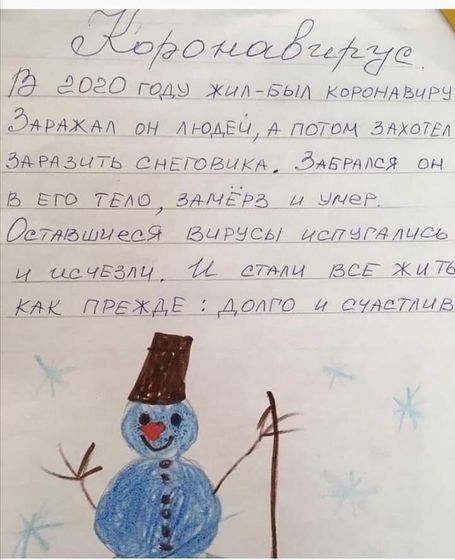 Коронавирус.
В 2020 году жил-был коронавиру
Заражал он людей, а потом захотел
заразить снеговика. Забрался он
в его тело, замёрз и умер.
Оставшиеся вирусы испугались
и исчезли. И стали все жить
как прежде: долго и счастлив